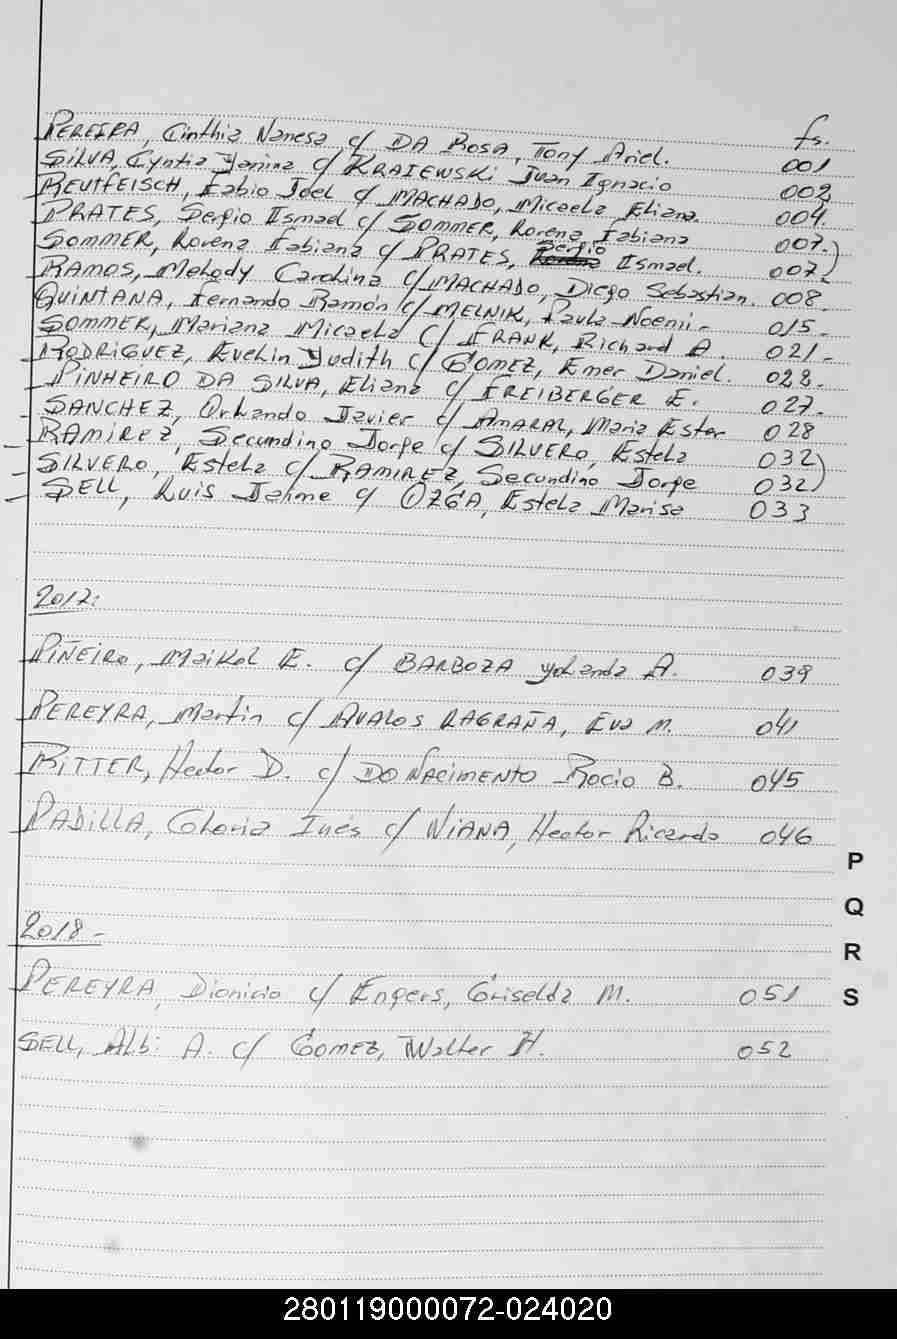 fs.
PEREIRA, Cinthia Vanesa c/ DA ROSA, Tony Ariel. 001
SILVA, Cyntia Yanina c/ KRAIEWSKI Juan Ignacio 002
REUTFEISCH, Fabio Joel c/ MACHADO, Micaela Eliana. 004
PRATES, Sergio Ismael c/ SOMMER, Lorena Fabiana 007.)
SOMMER, Lorena Fabiana c/ PRATES, Sergio Ismael. 007)
RAMOS, Melody Carolina c/ MACHADO, Diego Sebastian. 008
QUINTANA, Fernando Ramón c/ MELNIK, Paula Noemi- 015-
SOMMER, Mariana Micaela c/ FRANK, Richard A. 021-
RODRIGUEZ, Evelin Yudith c/ GOMEZ, Emer Daniel. 022.
PINHEIRO DA SILVA, Eliana c/ FREIBERGER E. 027.
SANCHEZ, Orlando Javier c/ AMARAL, Maria Ester 028
- RAMIREZ, Secundino Jorge c/ SILVERO, Estela 032)
- SILVERO, Estela c/ RAMIREZ, Secundino Jorge 032)
- SELL, Luis Jaime c/ OZGA, Estela Marisa 033
2017:
PIÑEIRO, Maikol E. c/ BARBOZA Yolanda A. 039
PEREYRA, Martin c/ AVALOS LAGRAÑA, Eva M. 041
RITTER, Hector D. c/ DO NACIMENTO Rocio B. 045
PADILLA, Gloria Inés c/ VIANA, Hector Ricardo 046
P
Q
2018-
R
PEREYRA, Dionicio c/ Engers, Griselda M. 051
S
SELL, Albi A. c/ GOMEZ, Walter H. 052
280119000072-024020